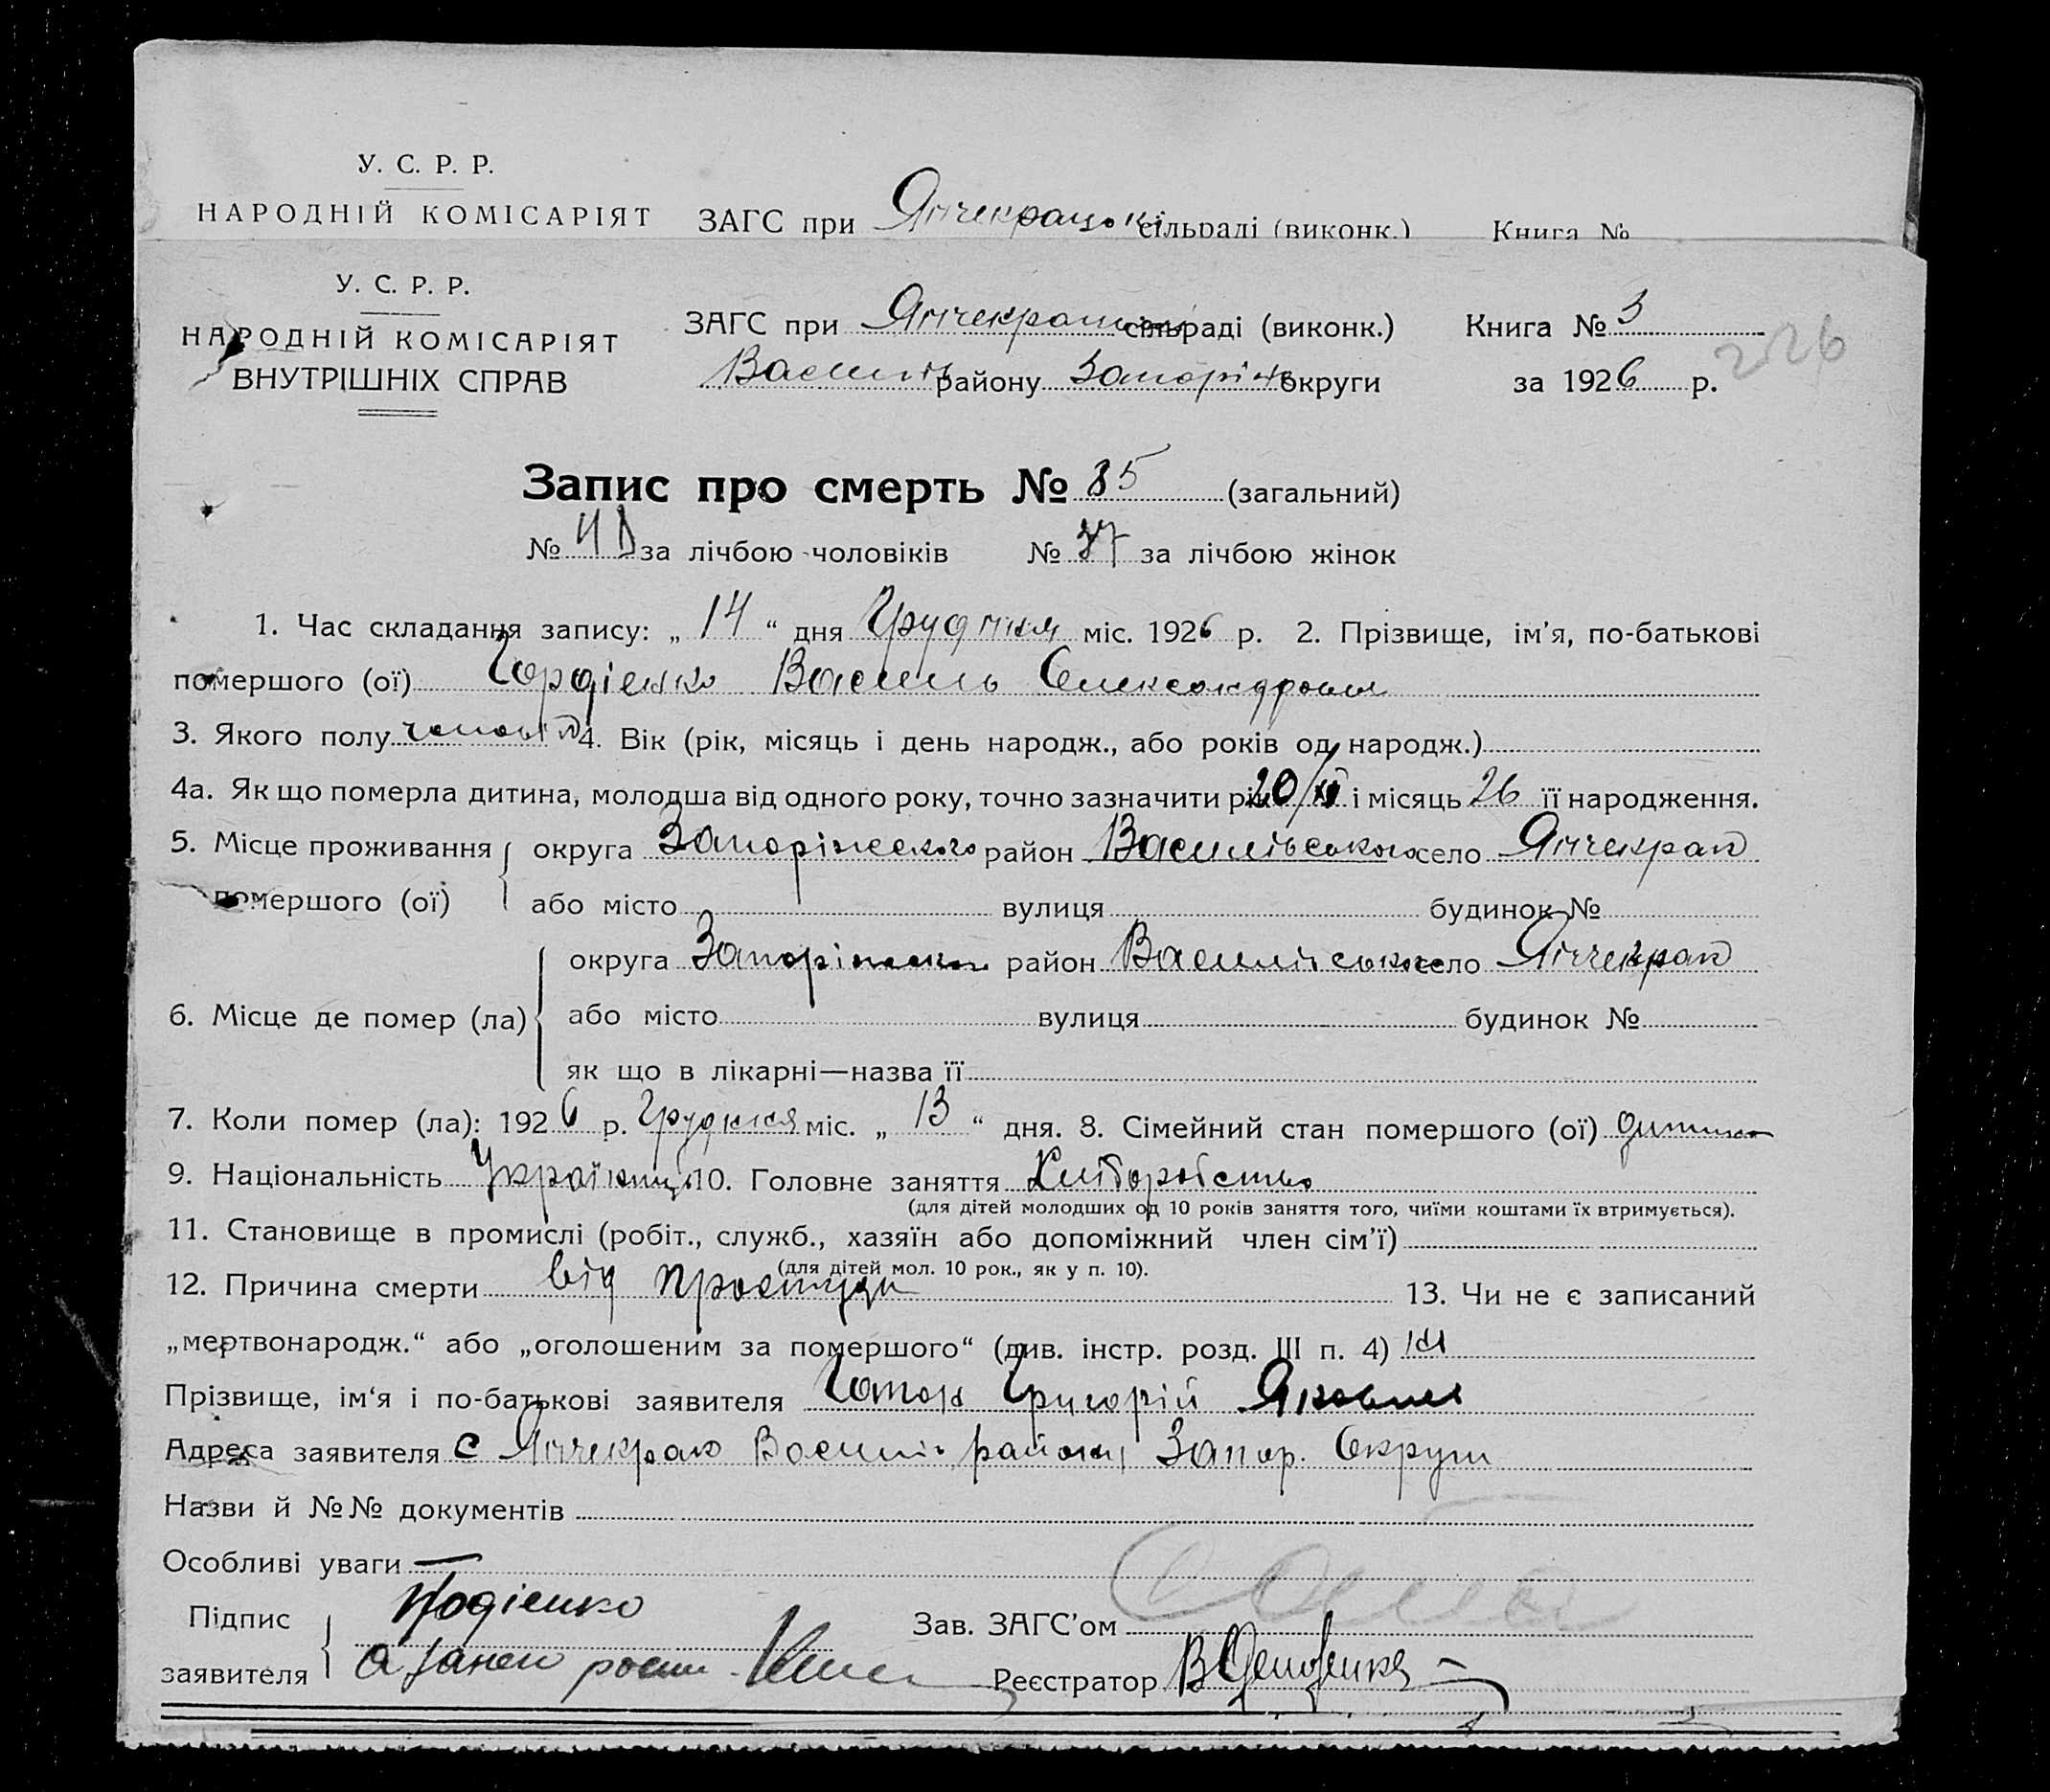 У. С. Р. Р.
НАРОДНІЙ КОМІСАРІЯТ ЗАГС при Янчекрацькі сільраді (виконк.) Книга №
У. С. Р. Р.
НАРОДНІЙ КОМІСАРІЯТ
ВНУТРІШНІХ СПРАВ
ЗАГС при сільраді (виконк.) Книга № 3
Василів району Запоріж округи за 1926 р.
226
Запис про смерть № 85 (загальний)
№ за лічбою чоловіків № 37 за лічбою жінок
1. Час складання запису: „ 14 “ дня Грудния міс. 1926 р. 2. Прізвище, ім’я, по-батькові
помершого (ої) Гордієнко Василь Олександрович
3. Якого полу чоловід 4. Вік (рік, місяць і день народж., або років од народж.)
4а. Як що померла дитина, молодша від одного року, точно зазначити рік 20/XI і місяць 26 її народження.
5. Місце проживання помершого (ої) округа Запоріжського район Василівського село Янчекрак
або місто вулиця будинок №
6. Місце де помер (ла) округа Запоріжського район Василівського село Янчекрак
або місто вулиця будинок №
як що в лікарні—назва її
7. Коли помер (ла): 1926 р. Грудния міс. „ 13 “ дня. 8. Сімейний стан помершого (ої) дитина
9. Національність Українець 10. Головне заняття Хліборобство
(для дітей молодших од 10 років заняття того, чиїми коштами їх втримується).
11. Становище в промислі (робіт., служб., хазяїн або допоміжний член сім’ї)
(для дітей мол. 10 рок., як у п. 10).
12. Причина смерти від простуди 13. Чи не є записаний
„мертвонародж.“ або „оголошеним за помершого“ (див. інстр. розд. III п. 4) ні
Прізвище, ім‘я і по-батькові заявителя Григорій Якович
Адреса заявителя с Янчекрак Василів району Запор. Округи
Назви й №№ документів
Особливі уваги —
Підпис заявителя
Зав. ЗАГС’ом
Реєстратор